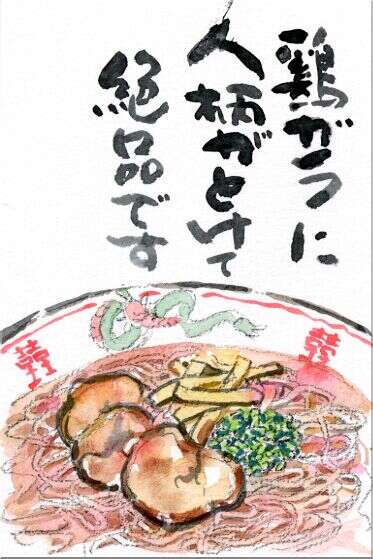 鶏がらに
人柄がとけて
絶品です
囍
囍